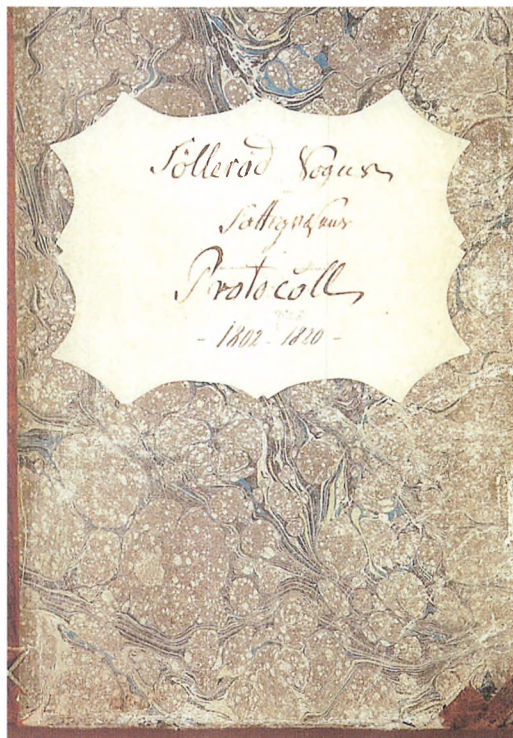 Søllerød Sogns
Fattigvæsens
Protocoll
- 1802 - 1820 -